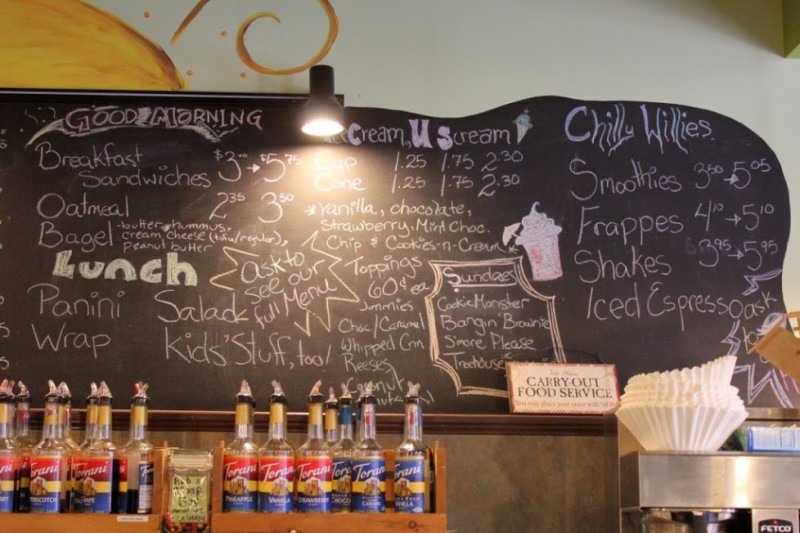 GOOD MORNING
Breakfast
Sandwiches $3.00 → $5.75
Oatmeal 2.35 3.50
Bagel -butter, hummus,
cream cheese (tofu/regular),
peanut butter
Lunch
Panini Salads
Wrap Kids' Stuff, too!
Ask to
see our
full Menu
Ice Cream, U Scream!
Cup 1.25 1.75 2.30
Cone 1.25 1.75 2.30
*vanilla, chocolate,
Strawberry, Mint Choc.
Chip & Cookies-n-Cream
Toppings
60¢ ea
Jimmies
Choc/Caramel
Whipped Crm
Reeses
Coconut
Sundaes
Cookie Monster
Bangin' Brownie
Smore Please
Treehouse
Chilly Willies
Smoothies 3.50 → 5.05
Frappes 4.10 → 5.10
Shakes 3.95 → 5.95
Iced Espresso ask
CARRY-OUT
FOOD SERVICE
You may place your order with
Torani
Torani
Torani
Torani
PINEAPPLE
Torani
VANILLA
Torani
STRAWBERRY
Torani
Torani
Torani
VANILLA
FETCO